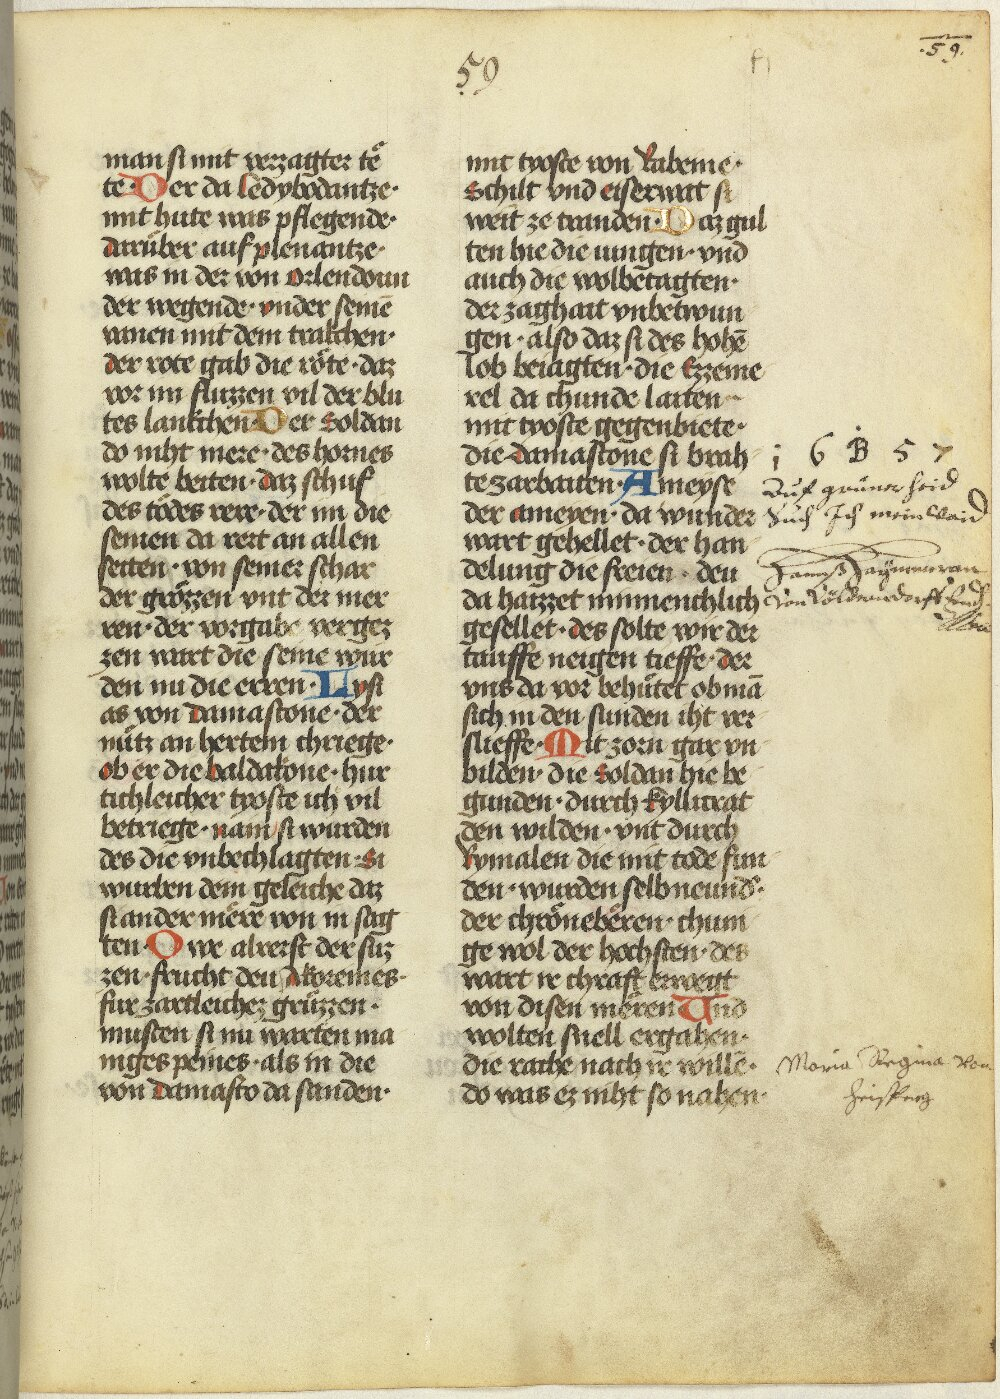 59
.59.
man si mit verzagter të
te· Der da Ledybodantze·
mit hute was pflegende·
darüber auf plenantze·
was in der von Orlendoun
der wegende· vnder seinē
vanen mit dem trakchen·
der rote gab die röte· daz
vor im fluzzen vil der blu
tes lankchen· Der Soldan
do niht mere· des hornes
wolte beiten· daz schuf
des todes rere· der im die
seinen da rert an allen
seiten· von seiner schar
der grözzen vnt der mer
ren· der vorgabe vergez
zen wart die seine wur
den nu die erren· Lysi
as von Damascone· der
nütz an hertem chriege·
ob er die baldakone· hur
tichleicher tyoste ich vil
betriege· nam si wurden
des die vnbechlagten· Si
wurben dem geleiche daz
si ander mëre von in sag
ten· Owe alrerst der süz
zen· frucht den Akoreines·
fur zartleichez grüzzen·
musten si nu warten ma
niges peines· als in die
von Damasco da sanden·
mit tyoste von Kabeine·
Schilt vnd eiserwat si
weit ze tranden· Daz gul
ten hie die iungen· vnd
auch die wolbetagten·
der zaghait vnbetwun
gen· also daz si des hohē
lob beiagten· die Ezzeine
rel da chunde laiten
mit tyoste gegenbiete·
die damascone si brah
te Sarbaiten· Ameyse
der ameyen· da wunder
wart gehellet· der han
delung die freien· den
da hazzet minnenchlich
gesellet· des solte wir der
tauffe neigen tieffe· der
vns da vor behütet ob mā
sich in den sunden iht ver
slieffe· Mit zorn gar vn
bilden· die Soldan hie be
gunden· durch kyllicrat
den wilden· vnt durch
Kymalen die mit tode fun
den· wurden selbneund·
der chrönebëren· chuni
ge wol der hochsten· des
wart ir chraft erwegt
von disen mëren Und
wolten snell ergahen·
die rache nach ir willē·
do was ez niht so nahen·
1 6 B 5 7
Auf grüner heid
Such Ich mein Waid
Maria Regina von